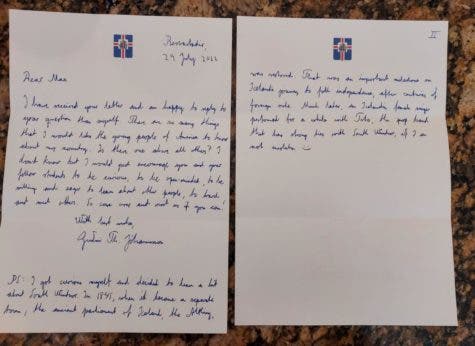 Bessastaðir,
29 July 2022
Dear Max
I have received your letter and am happy to reply to
your question than myself. There are so many things
that I would like the young people of America to know
about my country. Is there one above all other? I
don't know but I would just encourage you and your
fellow students to be curious, to be open-minded, to be
willing and eager to learn about other people, to travel
and meet others. So come and visit us if you can!
With best wishes,
Guðni Th. Jóhannesson
PS: I got curious myself and decided to learn a bit
about South Windsor. In 1845, when it became a separate
town, the ancient parliament of Iceland, the Alþing,
II
was restored. That was an important milestone on
Iceland's journey to full independence, after centuries of
foreign rule. Much later, an Icelandic singer
performed for a while with the pop band
that has strong ties with South Windsor, if I am
not mistaken